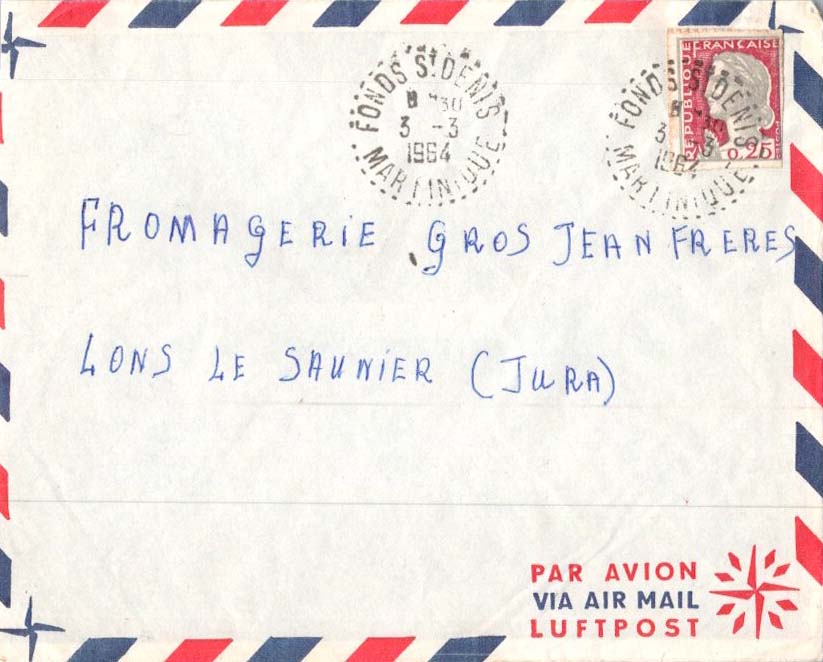 FONDS St DENIS
8 H30
3 -3
1964
MARTINIQUE
RÉPUBLIQUE FRANÇAISE
0,25
FONDS St DENIS
3 - 3
1964
MARTINIQUE
FROMAGERiE GROS JEAN FRERES
LONS LE SAUNiER (JURA)
PAR AVION
VIA AIR MAIL
LUFTPOST